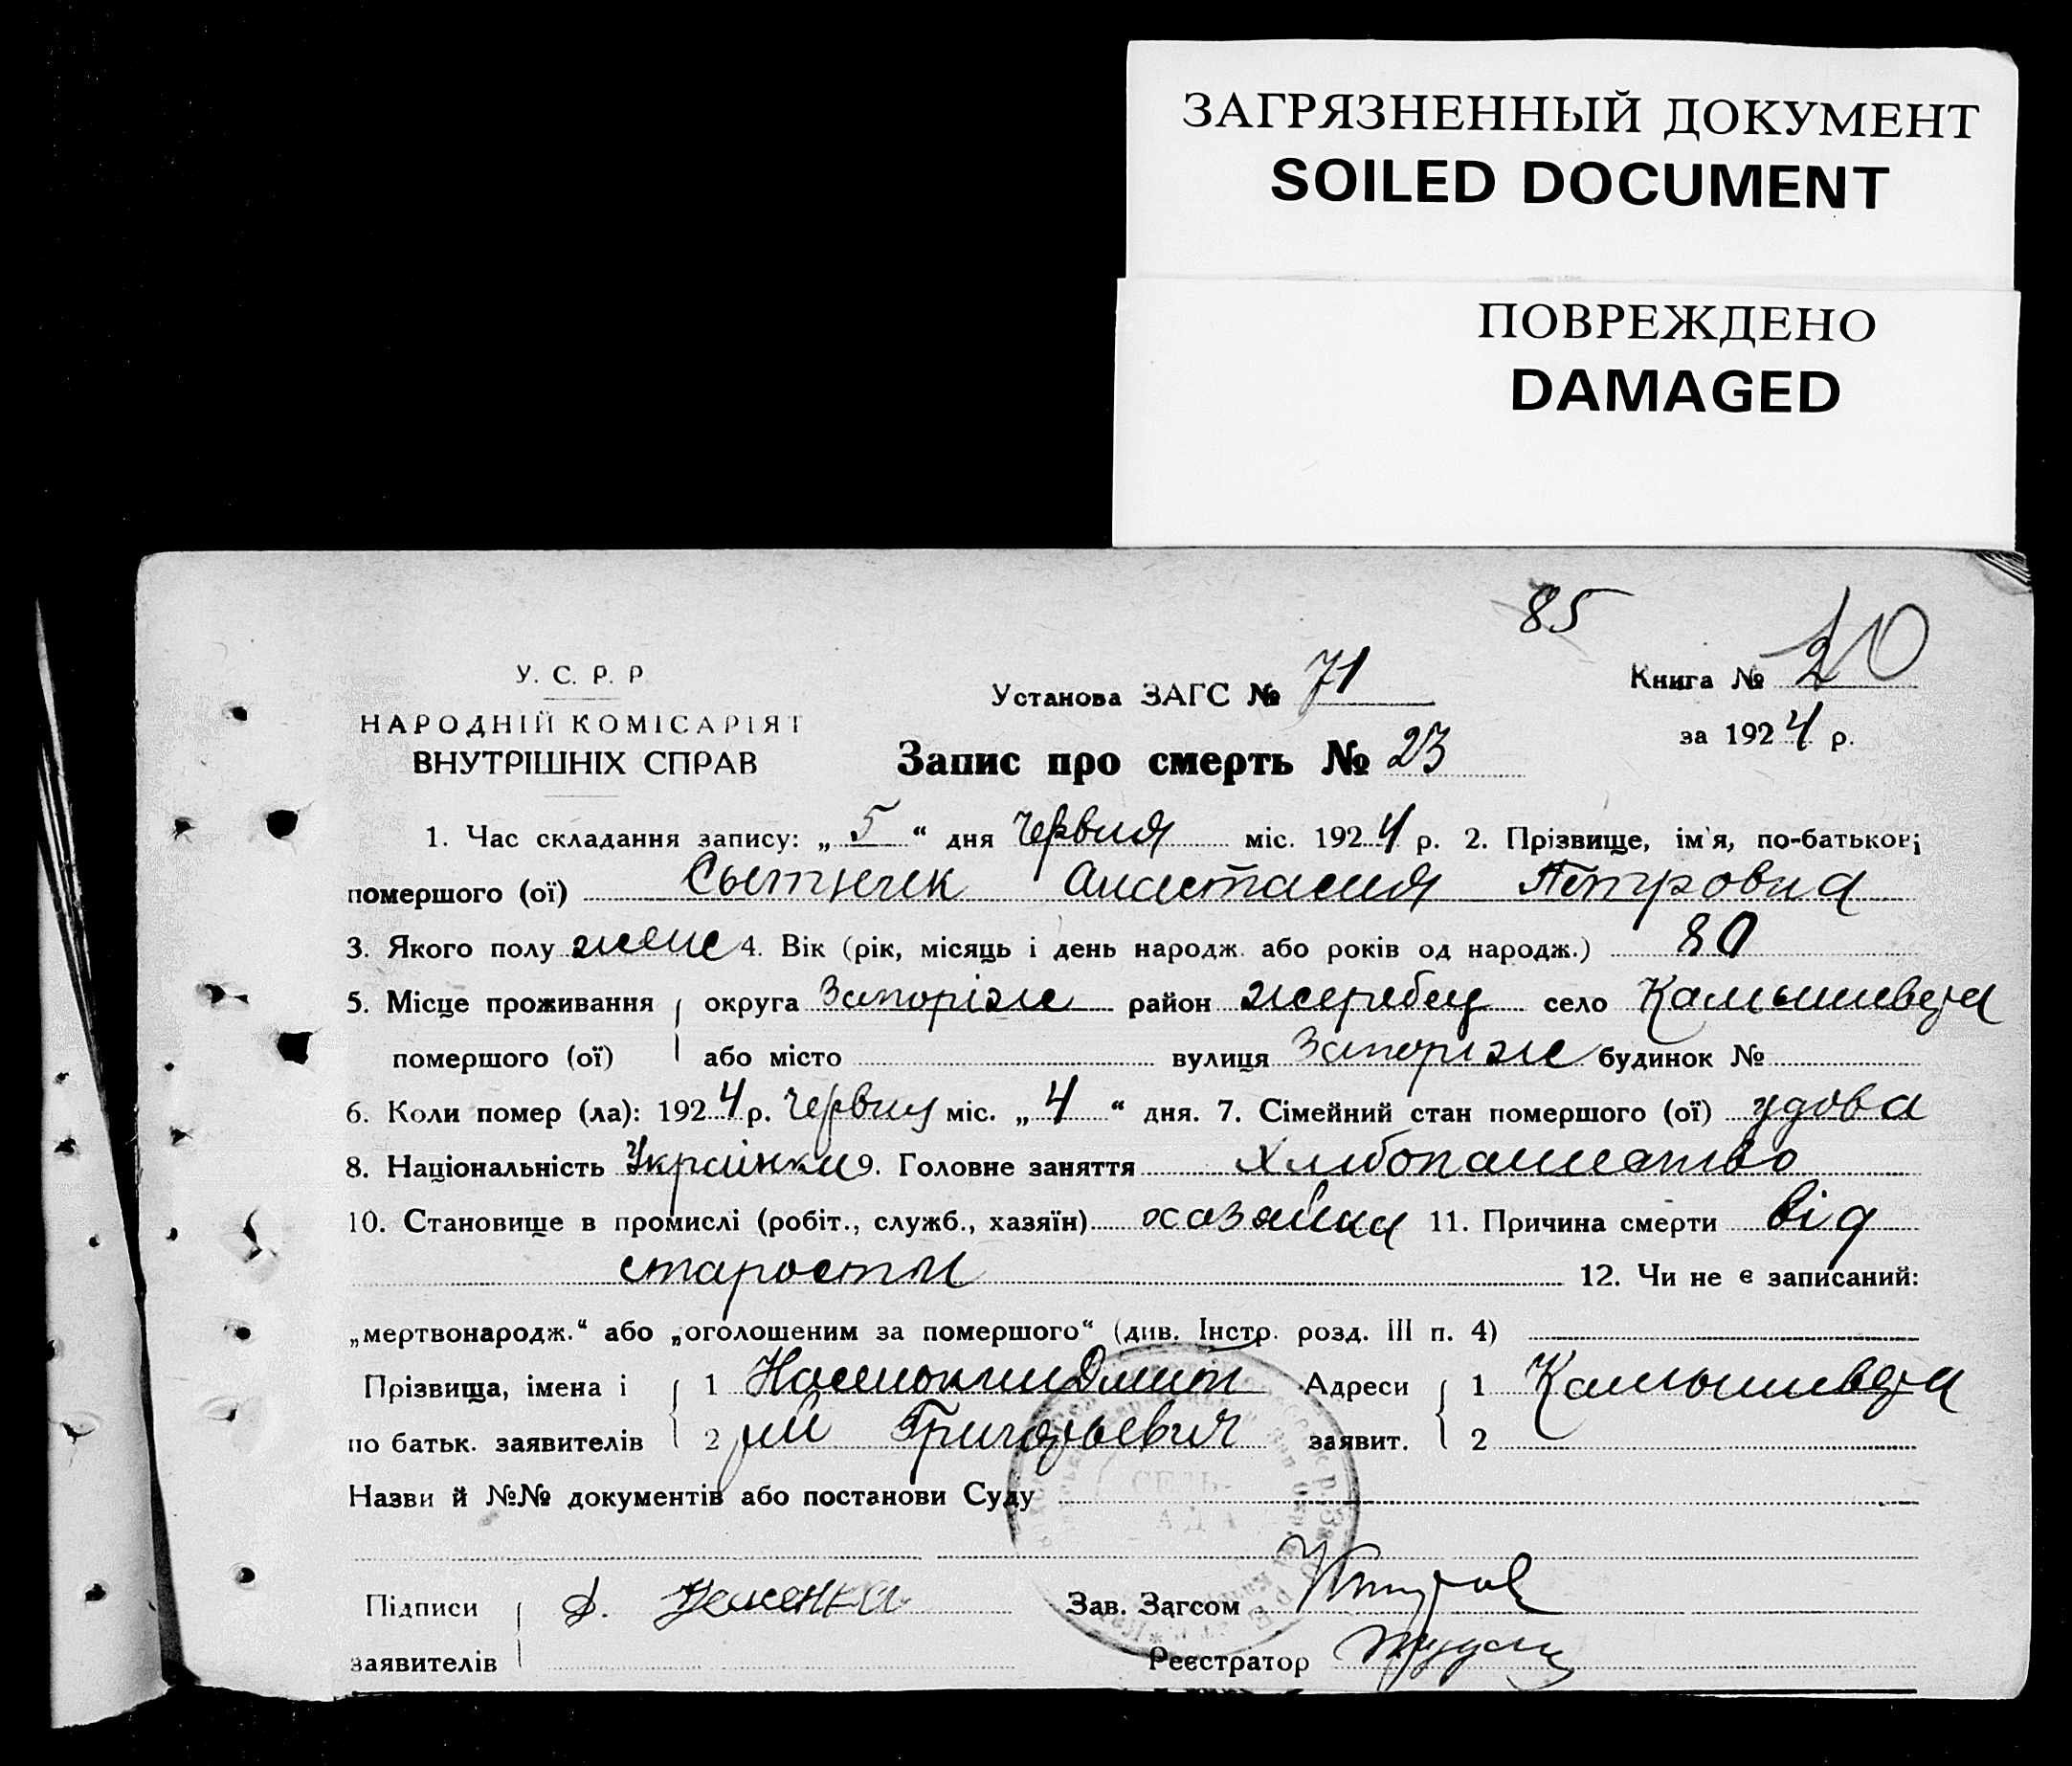 ЗАГРЯЗНЕННЫЙ ДОКУМЕНТ
SOILED DOCUMENT
ПОВРЕЖДЕНО
DAMAGED
85
У. С. Р. Р
Установа ЗАГС № 71
Книга № 20
НАРОДНІЙ КОМІСАРІЯТ
ВНУТРІШНІХ СПРАВ
за 1924 р.
Запис про смерть № 23
1. Час складання запису: „ 5 “ дня червня міс. 1924 р. 2. Прізвище, ім'я, по-батькові
помершого (ої) Сытнек Анастасия Петровна
3. Якого полу женс 4. Вік (рік, місяць і день народж. або років од народж.) 80
5. Місце проживання округа Запоріже район жеребец село Камышеваха
помершого (ої) або місто вулиця Запоріже будинок №
6. Коли помер (ла): 1924 р. червня міс. „ 4 “ дня. 7. Сімейний стан помершого (ої) удова
8. Національність Українка 9. Головне заняття Хлибопашество
10. Становище в промислі (робіт., служб., хазяїн) хазяйка 11. Причина смерти від
старости 12. Чи не є записаний:
„мертвонародж.“ або „оголошеним за помершого“ (див. Інстр. розд. III п. 4)
Прізвища, імена і 1 Дмит Адреси 1 Камышеваха
по батьк. заявителів 2 рий Григорьевич заявит. 2
Назви й №№ документів або постанови Суду
СЕЛЬ-
Підписи Д. Зав. Загсом
заявителів Реєстратор